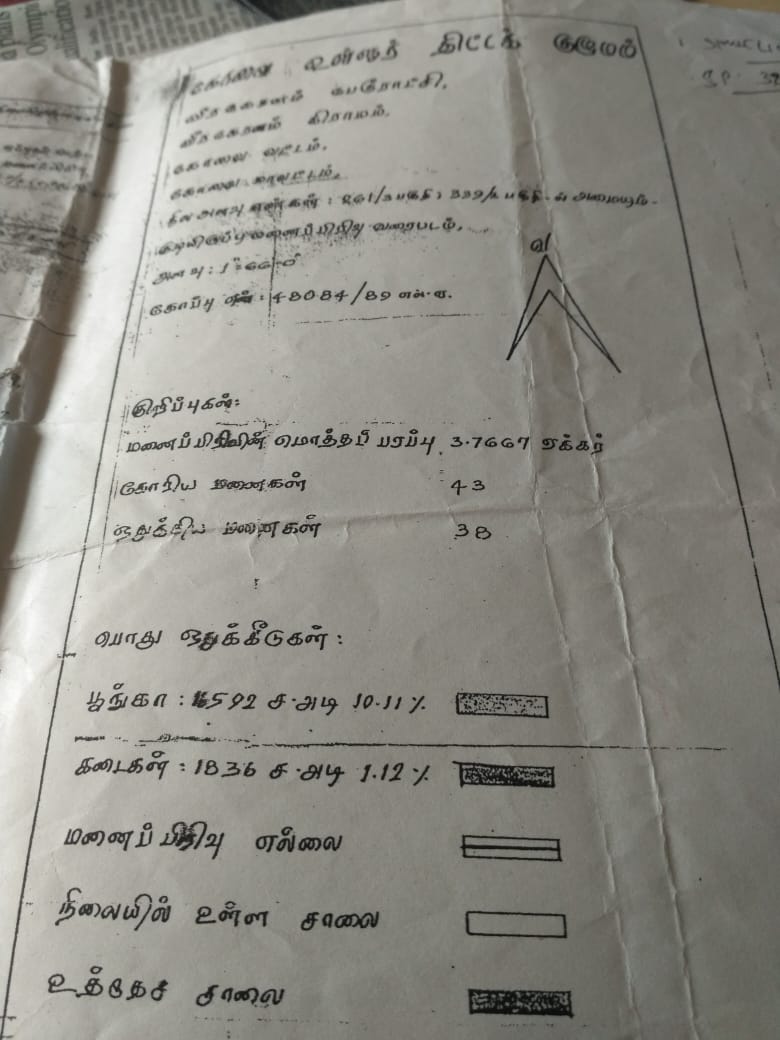 கோவை உள்ளூர் திட்டக் குழுமம்
வீரகேரளம் பேரூராட்சி.
வீரகேரளம் கிராமம்.
கோவை வட்டம்.
கோவை மாவட்டம்.
நில அளவு எண்கள் : பகுதி 339/ பகுதி-ல் அமையும்.
குடியிருப்பு மனைப்பிரிவு வரைபடம்.
வ
அளவு : 1"=66'-0"
கோப்பு எண் : 48084/89 எல்.ஏ.
குறிப்புகள்:
மனைப்பிரிவின் மொத்தப் பரப்பு 3.7667 ஏக்கர்
கோரிய மனைகள் 43
ஒதுக்கிய மனைகள் 38
பொது ஒதுக்கீடுகள் :
பூங்கா : 16592 ச.அடி 10.11%
கடைகள் : 1836 ச.அடி 1.12%
மனைப்பிரிவு எல்லை
நிலையில் உள்ள சாலை
உத்தேச சாலை